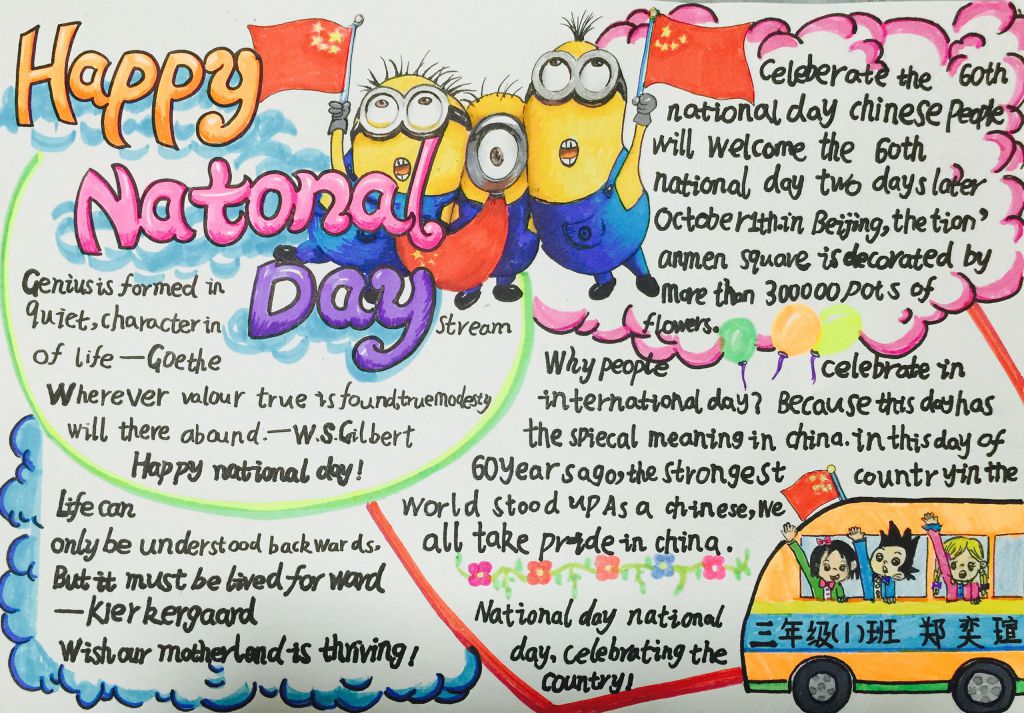 Happy
Natonal
Day
Genius is formed in
quiet, character in
stream
of life — Goethe
Wherever valour true is found, true modesty
will there abound. — W.S.Gilbert
Happy national day!
Life can
only be understood backwards.
But it must be lived for ward
— Kierkergaard
Wish our motherland is thriving!
Celeberate the 60th
national day chinese People
will welcome the 60th
national day two days later
October 1th.in Beijing, the tion'
anmen square is decorated by
More than 300000 pots of
flowers.
Why people celebrate in
international day? Because this day has
the spiecal meaning in china. in this day of
60 years ago, the strongest country in the
World stood up As a chinese, We
all take pride in china.
National day national
day. Celebrating the
country!
三年级(1)班 郑奕瑄